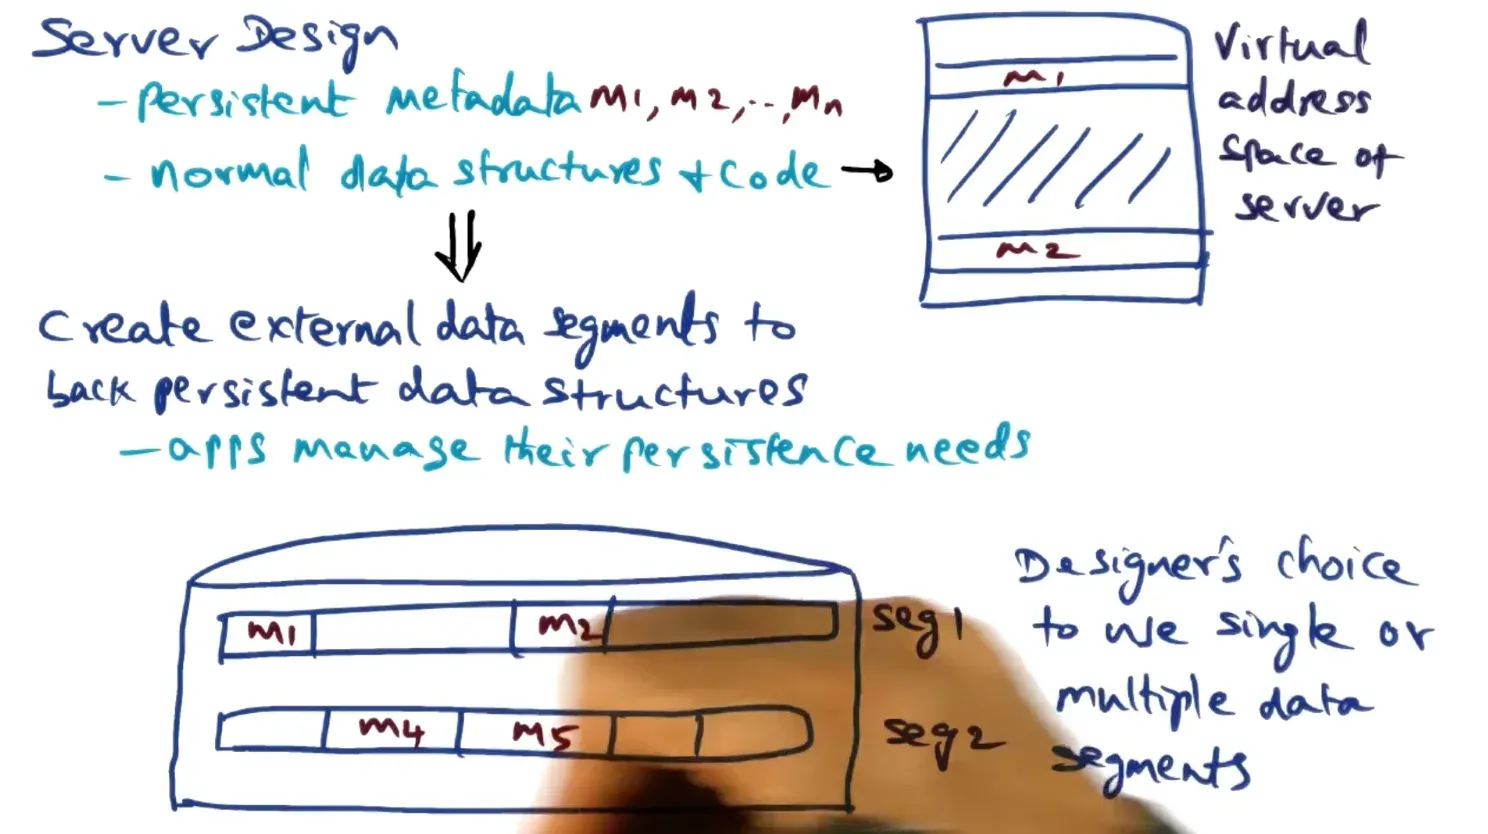 Server Design
- persistent metadata m1, m2, .., mn
- normal data structures + code →
m1
m2
Virtual
address
space of
server
⇓
Create external data segments to
back persistent data structures
- apps manage their persistence needs
m1 m2 seg1
m4 m5 seg2
Designer's choice
to use single or
multiple data
segments